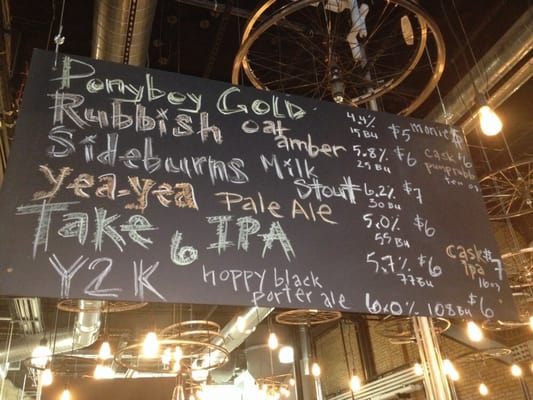 Ponyboy Gold 4.4% $5
15 BU
Rubbish oat amber 5.8% $6
29 BU
Sideburns Milk Stout 6.2% $7
30 BU
Yea-Yea Pale Ale 5.0% $6
55 BU
Take 6 IPA 5.7% $6
77 BU
Y2K hoppy black porter ale 6.0% 108 BU $6
cask $6
cask $7
ipa
16oz